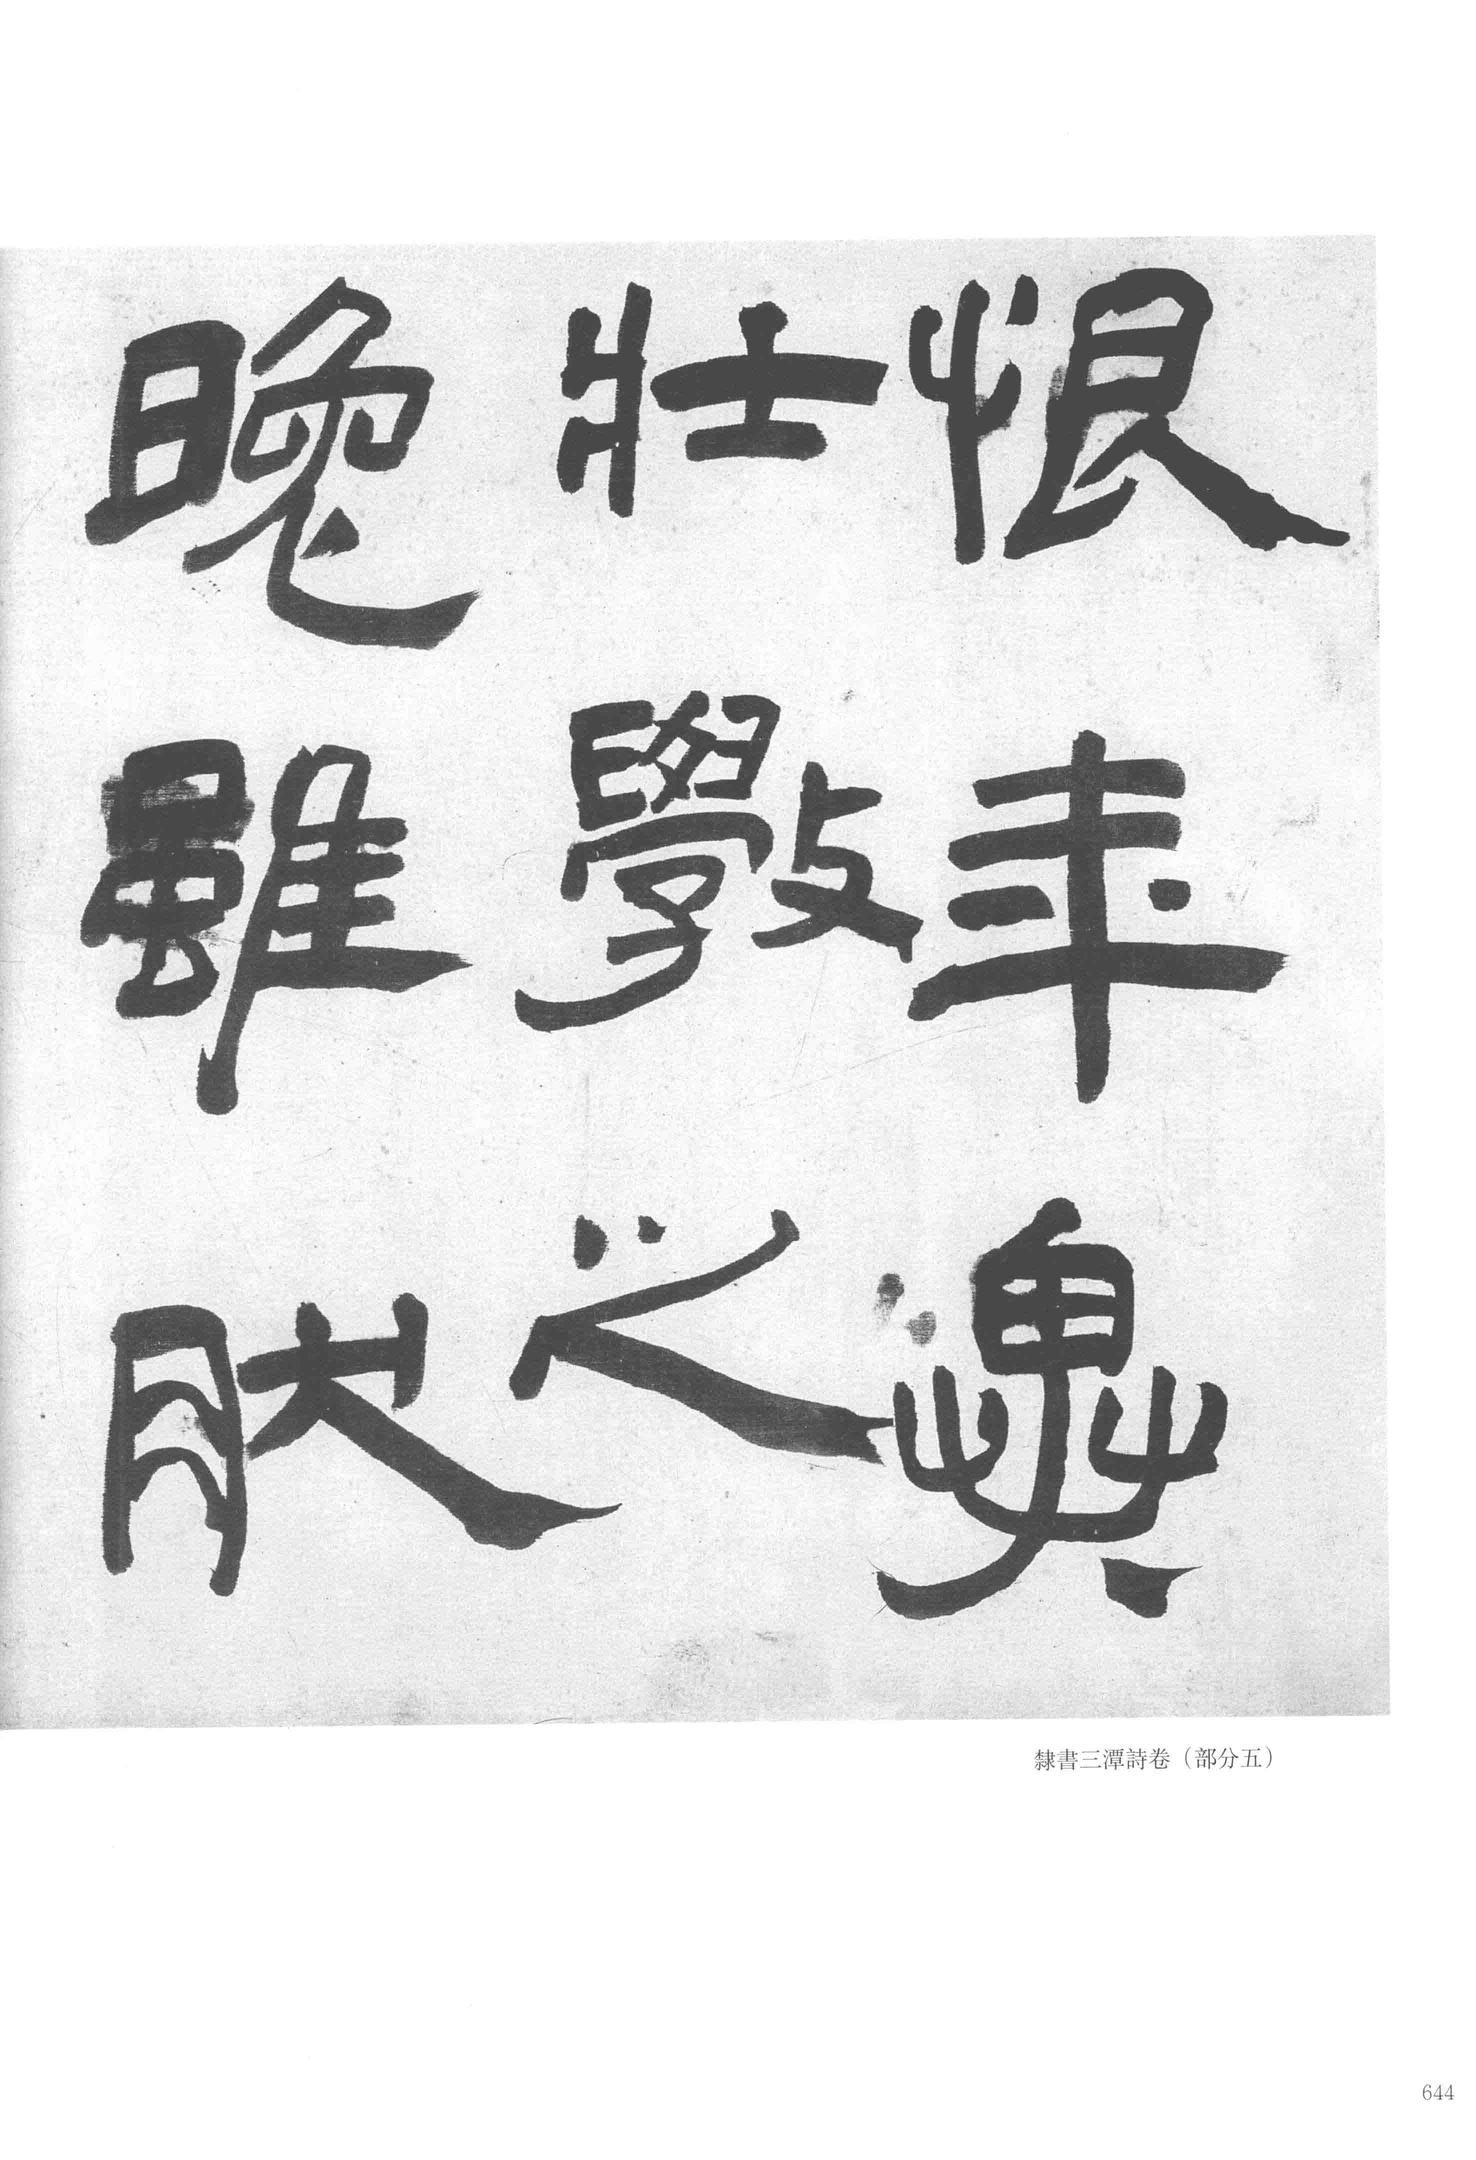 恨年異
壯斆之
晚雖肰
隸書三潭詩卷（部分五）
644